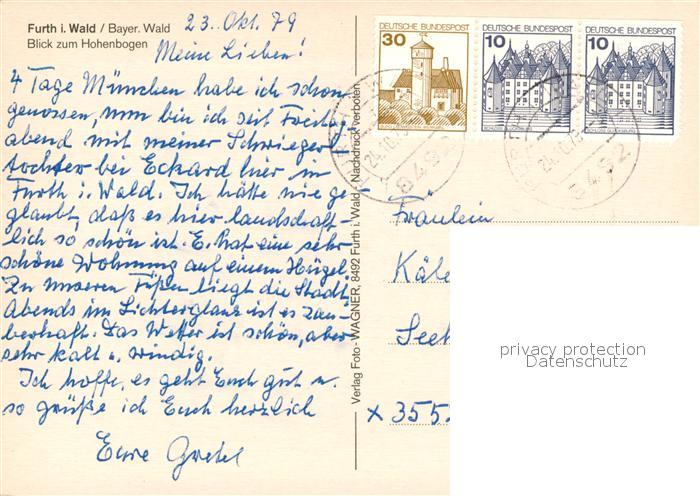 Furth i. Wald / Bayer. Wald
Blick zum Hohenbogen
23. Okt. 79
Meine Lieben!
4 Tage München habe ich schon
genossen, nun bin ich seit Freitag
abend mit meiner Schwieger-
tochter bei Eckard hier in
Furth i. Wald. Ich hätte nie ge-
glaubt, daß es hier landschaft-
lich so schön ist. E. hat eine sehr
schöne Wohnung auf einem Hügel.
Zu unseren Füßen liegt die Stadt.
Abends im Lichterglanz ist es zau-
berhaft. Das Wetter ist schön, aber
sehr kalt u. windig.
Ich hoffe, es geht Euch gut u.
so grüße ich Euch herzlich
Eure Gretel
Verlag Foto-WAGNER, 8492 Furth i. Wald - Nachdruck verboten
DEUTSCHE BUNDESPOST
30
DEUTSCHE BUNDESPOST
10
DEUTSCHE BUNDESPOST
10
24.10.79
8492
24.10.79
8492
Fräulein
Käte
See
x 355
privacy protection
Datenschutz